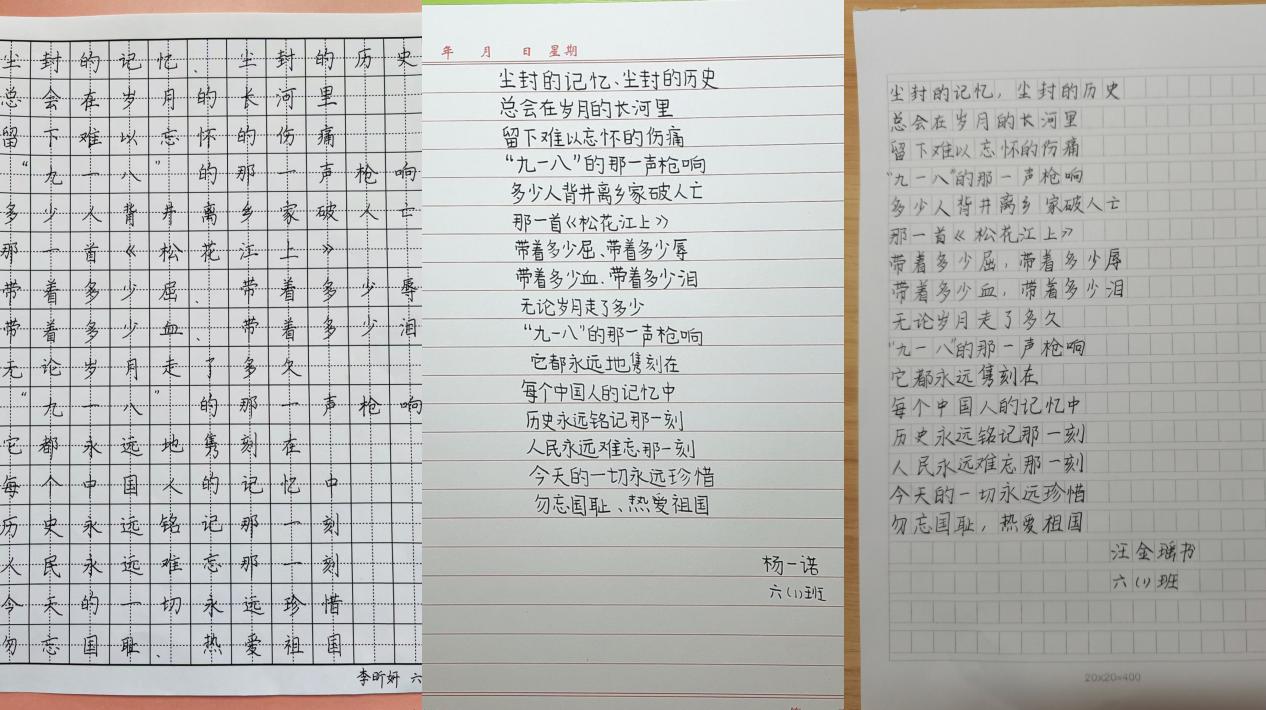 尘封的记忆、尘封的历史
总会在岁月的长河里
留下难以忘怀的伤痛
“九一八”的那一声枪响
多少人背井离乡家破人亡
那一首《松花江上》
带着多少屈、带着多少辱
带着多少血、带着多少泪
无论岁月走了多久
“九一八”的那一声枪响
它都永远地隽刻在
每个中国人的记忆中
历史永远铭记那一刻
人民永远难忘那一刻
今天的一切永远珍惜
勿忘国耻、热爱祖国
李昕妍 六
年 月 日 星期
尘封的记忆、尘封的历史
总会在岁月的长河里
留下难以忘怀的伤痛
“九一八”的那一声枪响
多少人背井离乡家破人亡
那一首《松花江上》
带着多少屈、带着多少辱
带着多少血、带着多少泪
无论岁月走了多少
“九一八”的那一声枪响
它都永远地隽刻在
每个中国人的记忆中
历史永远铭记那一刻
人民永远难忘那一刻
今天的一切永远珍惜
勿忘国耻、热爱祖国
杨一诺
六(1)班
尘封的记忆，尘封的历史
总会在岁月的长河里
留下难以忘怀的伤痛
“九一八”的那一声枪响
多少人背井离乡家破人亡
那一首《松花江上》
带着多少屈，带着多少辱
带着多少血，带着多少泪
无论岁月走了多久
“九一八”的那一声枪响
它都永远隽刻在
每个中国人的记忆中
历史永远铭记那一刻
人民永远难忘那一刻
今天的一切永远珍惜
勿忘国耻，热爱祖国
汪金瑶书
六(1)班
20x20=400